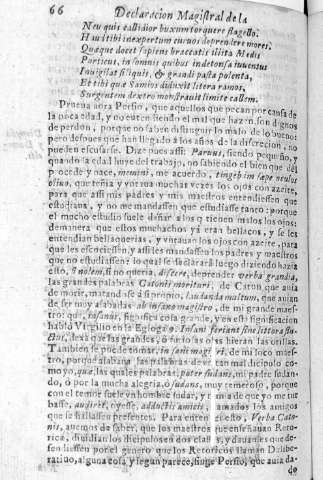 66 Declaracion Magistral de la
Neu quis callidior buxum torquere flagello.
Haud tibi inexpertum curuos deprendere mores.
Quæque docet sapiens braccatis illita Medis
Porticus, insomnis quibus indetonsa iuuentus
Inuigilat siliquis, & grandi pasta polenta,
Et tibi quæ Samios diduxit litera ramos,
Surgentem dextro monstrauit limite callem.
Prueua aora Persio, que aquellos que pecan por causa de
la poca edad, y no euten siendo el mal que hazen, son dignos
de perdon, porque no saben distinguir lo malo de lo bueno:
pero despues que han llegado à los años de la discrecion, no
pueden escusarse. Dize pues assi: Paruus, siendo pequeño, y
quando la edad huye del trabajo, no sabiendo el bien que del
procede y nace, memini, me acuerdo, tingebam sæpe oculos
oliuo, que teñia y vntaua muchas vezes los ojos con azeite,
para que assi mis padres y mis maestros entendiessen que
estudiaua, y no me mandassen que estudiasse tanto: porque
el mucho estudio suele dañar à los que tienen malos los ojos:
demanera que estos muchachos yà eran bellacos, y se les
entendian bellaquerias, y vntauan los ojos con azeite, para
que les escociessen, y assi les mandassen los padres y maestros
que no estudiassen? lo qual se declararà luego diziendo hazia
esto, si nolem, si no queria, discere, deprender verba grandia,
las grandes palabras Catonis morituri, de Caton, que auia
de morir, matandose à si propio, laudanda multum, que auian
de ser muy alabadas ab insano magistro, de mi grande maestro:
que, insanus, significa cosa grande, y en esta significacion
hablò Virgilio en la Egloga 9. Insani feriant sine littora fluctus,
dexa que las grandes, ò furiosas olas hieran las orillas.
Tambien se puede tomar, insani magistri, de mi loco maestro,
porque alabaua las palabras de vn tan mal dicipulo como
yo, quæ, las quales palabras, pater sudans, mi padre sudando,
ò por la mucha alegria, ò sudans, muy temeroso, porque
con el temor suele vn hombre sudar, y temia de que yo me turbasse,
audiret, oyesse, adductis amicis, amados los amigos
que se hallassen presentes. Para entender esto, Verba Catonis,
auemos de saber, que los maestros que enseñauan Retorica,
diuidian los dicipulos en dos clases, y dauanles que defendiessen
por el genero que los Retoricos llaman Deliberatiuo,
alguna cosa, y segun parece, finge Persio, que auia da-
do